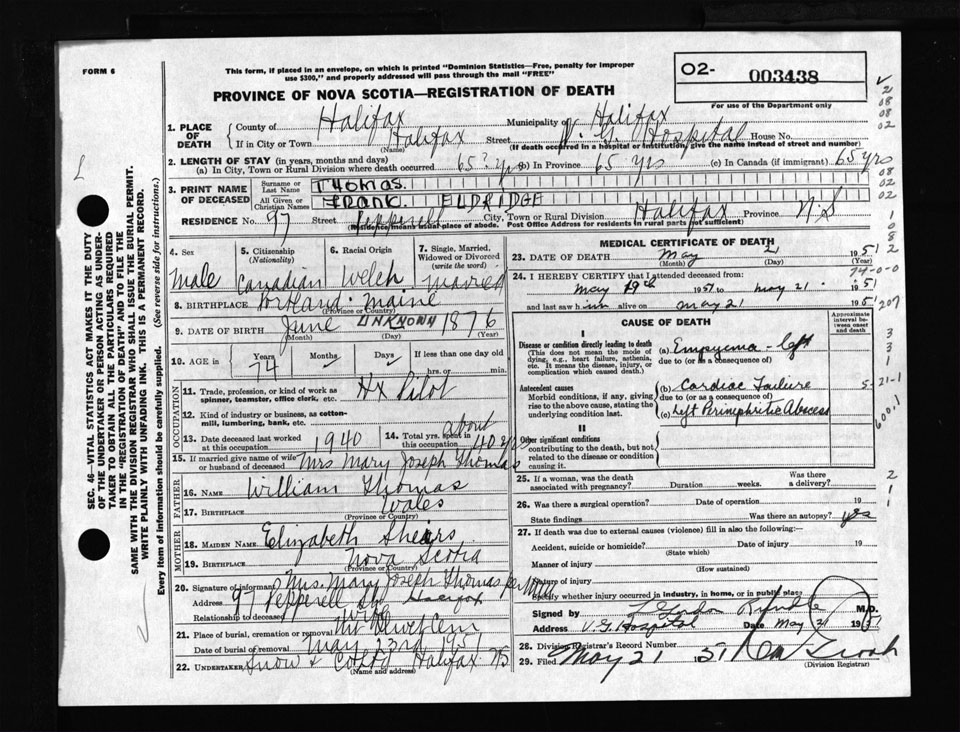 FORM 6
This form, if placed in an envelope, on which is printed "Dominion Statistics—Free, penalty for improper
use $300," and properly addressed will pass through the mail "FREE"
O2- 003438
For use of the Department only
PROVINCE OF NOVA SCOTIA—REGISTRATION OF DEATH
1. PLACE OF DEATH { County of Halifax Municipality of Halifax
If in City or Town Halifax (Name) Street V. G. Hospital House No.
(If death occurred in a hospital or institution, give the name instead of street and number)
2. LENGTH OF STAY (in years, months and days)
(a) In City, Town or Rural Division where death occurred 65? yrs (b) In Province 65 yrs (c) In Canada (if immigrant) 65 yrs
3. PRINT NAME OF DECEASED { Surname or Last Name THOMAS.
All Given or Christian Names FRANK ELDRIDGE
RESIDENCE No. 97 Street Pepperell City, Town or Rural Division Halifax Province N.S
(Residence means usual place of abode. Post Office Address for residents in rural parts not sufficient)
4. Sex Male
5. Citizenship (Nationality) Canadian
6. Racial Origin Welch
7. Single, Married, Widowed or Divorced (write the word) Married
8. BIRTHPLACE Portland Maine
(Province or Country)
9. DATE OF BIRTH June UNKNOWN 1876
(Month) (Day) (Year)
10. AGE in { Years 74 Months ✓ Days ✓ If less than one day old
hrs. or min.
OCCUPATION
11. Trade, profession, or kind of work as spinner, teamster, office clerk, etc. Hx Pilot
12. Kind of industry or business, as cotton-mill, lumbering, bank, etc.
13. Date deceased last worked at this occupation 1940
14. Total yrs. spent in this occupation about 40 yrs
15. If married give name of wife or husband of deceased Mrs Mary Joseph Thomas
FATHER
16. NAME William Thomas
17. BIRTHPLACE Wales
(Province or Country)
MOTHER
18. MAIDEN NAME Elizabeth Shears
19. BIRTHPLACE Nova Scotia
(Province or Country)
20. Signature of informant Mrs. Mary Joseph Thomas per
Address 97 Pepperell St Halifax
Relationship to deceased Wife
21. Place of burial, cremation or removal Mt Olivet Cem
Date of burial or removal May 23rd 1951
22. UNDERTAKER Snow & Co Ltd Halifax NS
(Name and address)
MEDICAL CERTIFICATE OF DEATH
23. DATE OF DEATH May 21 1951
(Month) (Day) (Year)
24. I HEREBY CERTIFY that I attended deceased from:
May 19th 1951 to May 21 1951
and last saw him alive on May 21 1951
CAUSE OF DEATH
Approximate interval between onset and death
I
Disease or condition directly leading to death
(This does not mean the mode of dying, e.g., heart failure, asthenia, etc. It means the disease, injury, or complication which caused death.)
(a) Empyema - left
due to (or as a consequence of)
Antecedent causes
Morbid conditions, if any, giving rise to the above cause, stating the underlying condition last.
(b) Cardiac Failure
due to (or as a consequence of)
(c) Left Perinephritic Abscess
II
Other significant conditions contributing to the death, but not related to the disease or condition causing it.
25. If a woman, was the death associated with pregnancy? Duration weeks. Was there a delivery?
26. Was there a surgical operation? Date of operation 19
State findings Was there an autopsy? yes
27. If death was due to external causes (violence) fill in also the following:—
Accident, suicide or homicide? Date of injury 19
(State which)
Manner of injury
(How sustained)
Nature of injury
Specify whether injury occurred in industry, in home, or in public place
Signed by M.D.
Address V. G. Hospital Date May 21 1951
28. Division Registrar's Record Number
29. Filed May 21 1951
(Division Registrar)
SEC. 46—VITAL STATISTICS ACT MAKES IT THE DUTY
OF THE UNDERTAKER OR PERSON ACTING AS UNDER-
TAKER TO OBTAIN ALL THE PARTICULARS REQUIRED
IN THE "REGISTRATION OF DEATH" AND TO FILE THE
SAME WITH THE DIVISION REGISTRAR WHO SHALL ISSUE THE BURIAL PERMIT.
WRITE PLAINLY WITH UNFADING INK. THIS IS A PERMANENT RECORD.
Every item of information should be carefully supplied. (See reverse side for instructions.)
2
08
08
02
08
02
02
1
0
8
2
74-0-0
207
3
3
1
5-21-1
600.1
2
1
1